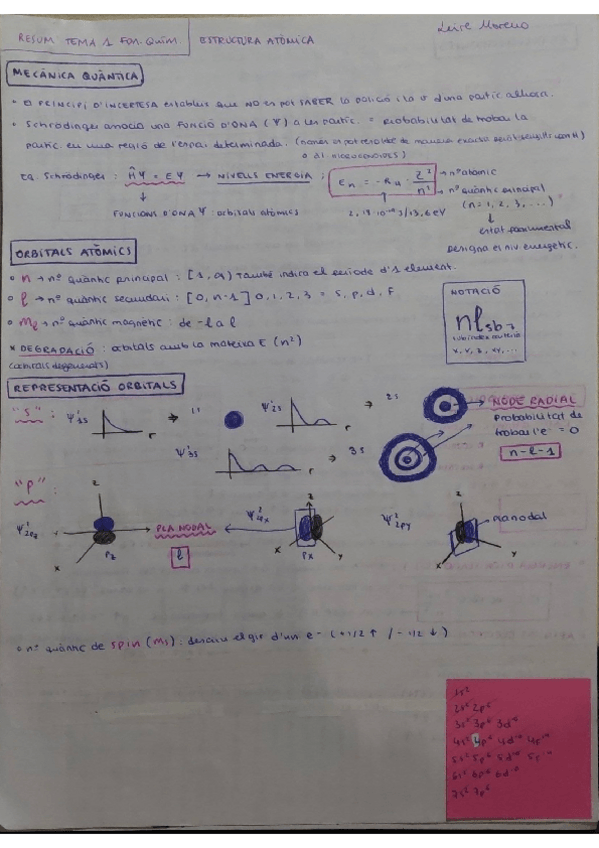 RESUM TEMA 1 FON. QUÍM. ESTRUCTURA ATÒMICA
Leire Moreno
MECÀNICA QUÀNTICA
• El PRINCIPI D'INCERTESA estableix que NO es pot SABER la posició i la v d'una partíc. alhora.
• Schrödinger associa una FUNCIÓ D'ONA (Ψ) a les partíc. = Probabilitat de trobar la
partíc en una regió de l'espai determinada. (només es pot resoldre de manera exacta
o
Eq. Schrödinger: ĤΨ = EΨ → NIVELLS ENERGIA ; En = -RH · Z²/n² → nº atòmic
→ nº quàntic principal
(n = 1, 2, 3, ...)
↓
FUNCIONS D'ONA Ψ: orbitals atòmics
2,18·10⁻¹⁸ J/13,6 eV
↓
estat fonamental
Designa el niv energètic.
ORBITALS ATÒMICS
• n → nº quàntic principal : [1, ∞) També indica el període d'1 element.
• l → nº quàntic secundari : [0, n-1] 0, 1, 2, 3 = s, p, d, f
• ml → nº quàntic magnètic : de -l a l
* DEGRADACIÓ : orbitals amb la mateixa E (n²)
NOTACIÓ
nl sb →
x, y, z, xy, ...
REPRESENTACIÓ ORBITALS
"s" : Ψ²1s r → 1s Ψ²2s r → 2s → NODE RADIAL
Probabilitat de
trobar l'e⁻ = 0
n-l-1
Ψ²3s r → 3s
"p" :
Ψ²2pz z x Pz → PLA NODAL ← Ψ²2px z x y Px
l
Ψ²2py z x y pla nodal
• nº quàntic de spin (ms) : descriu el gir d'un e- (+1/2 ↑ / -1/2 ↓)
1s²
2s² 2p⁶
3s² 3p⁶ 3d¹⁰
4s² 4p⁶ 4d¹⁰ 4f¹⁴
5s² 5p⁶ 5d¹⁰ 5f¹⁴
6s² 6p⁶ 6d¹⁰
7s² 7p⁶